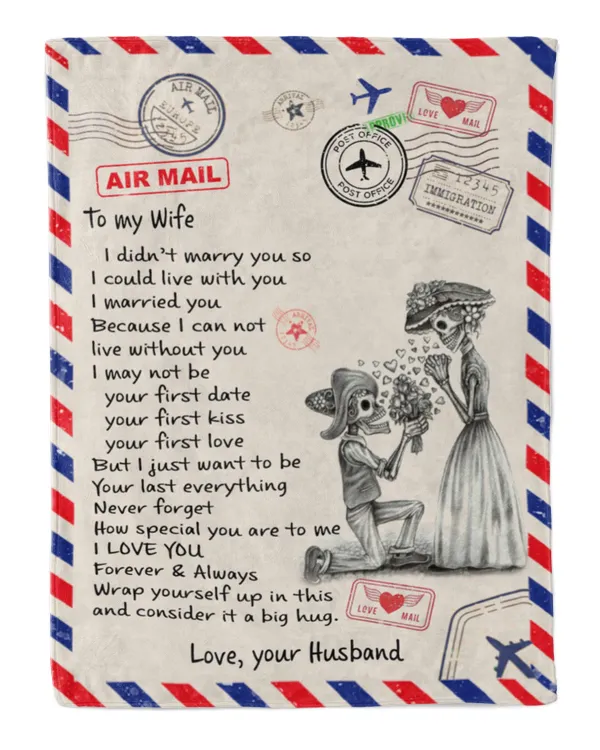 AIR MAIL
EUROPE
ARRIVAL
LOVE MAIL
POST OFFICE
POST OFFICE
12345
IMMIGRATION
************
AIR MAIL
To my Wife
I didn't marry you so
I could live with you
I married you
Because I can not
live without you
I may not be
your first date
your first kiss
your first love
But I just want to be
Your last everything
Never forget
How special you are to me
I LOVE YOU
Forever & Always
Wrap yourself up in this
and consider it a big hug.
LOVE MAIL
Love, your Husband